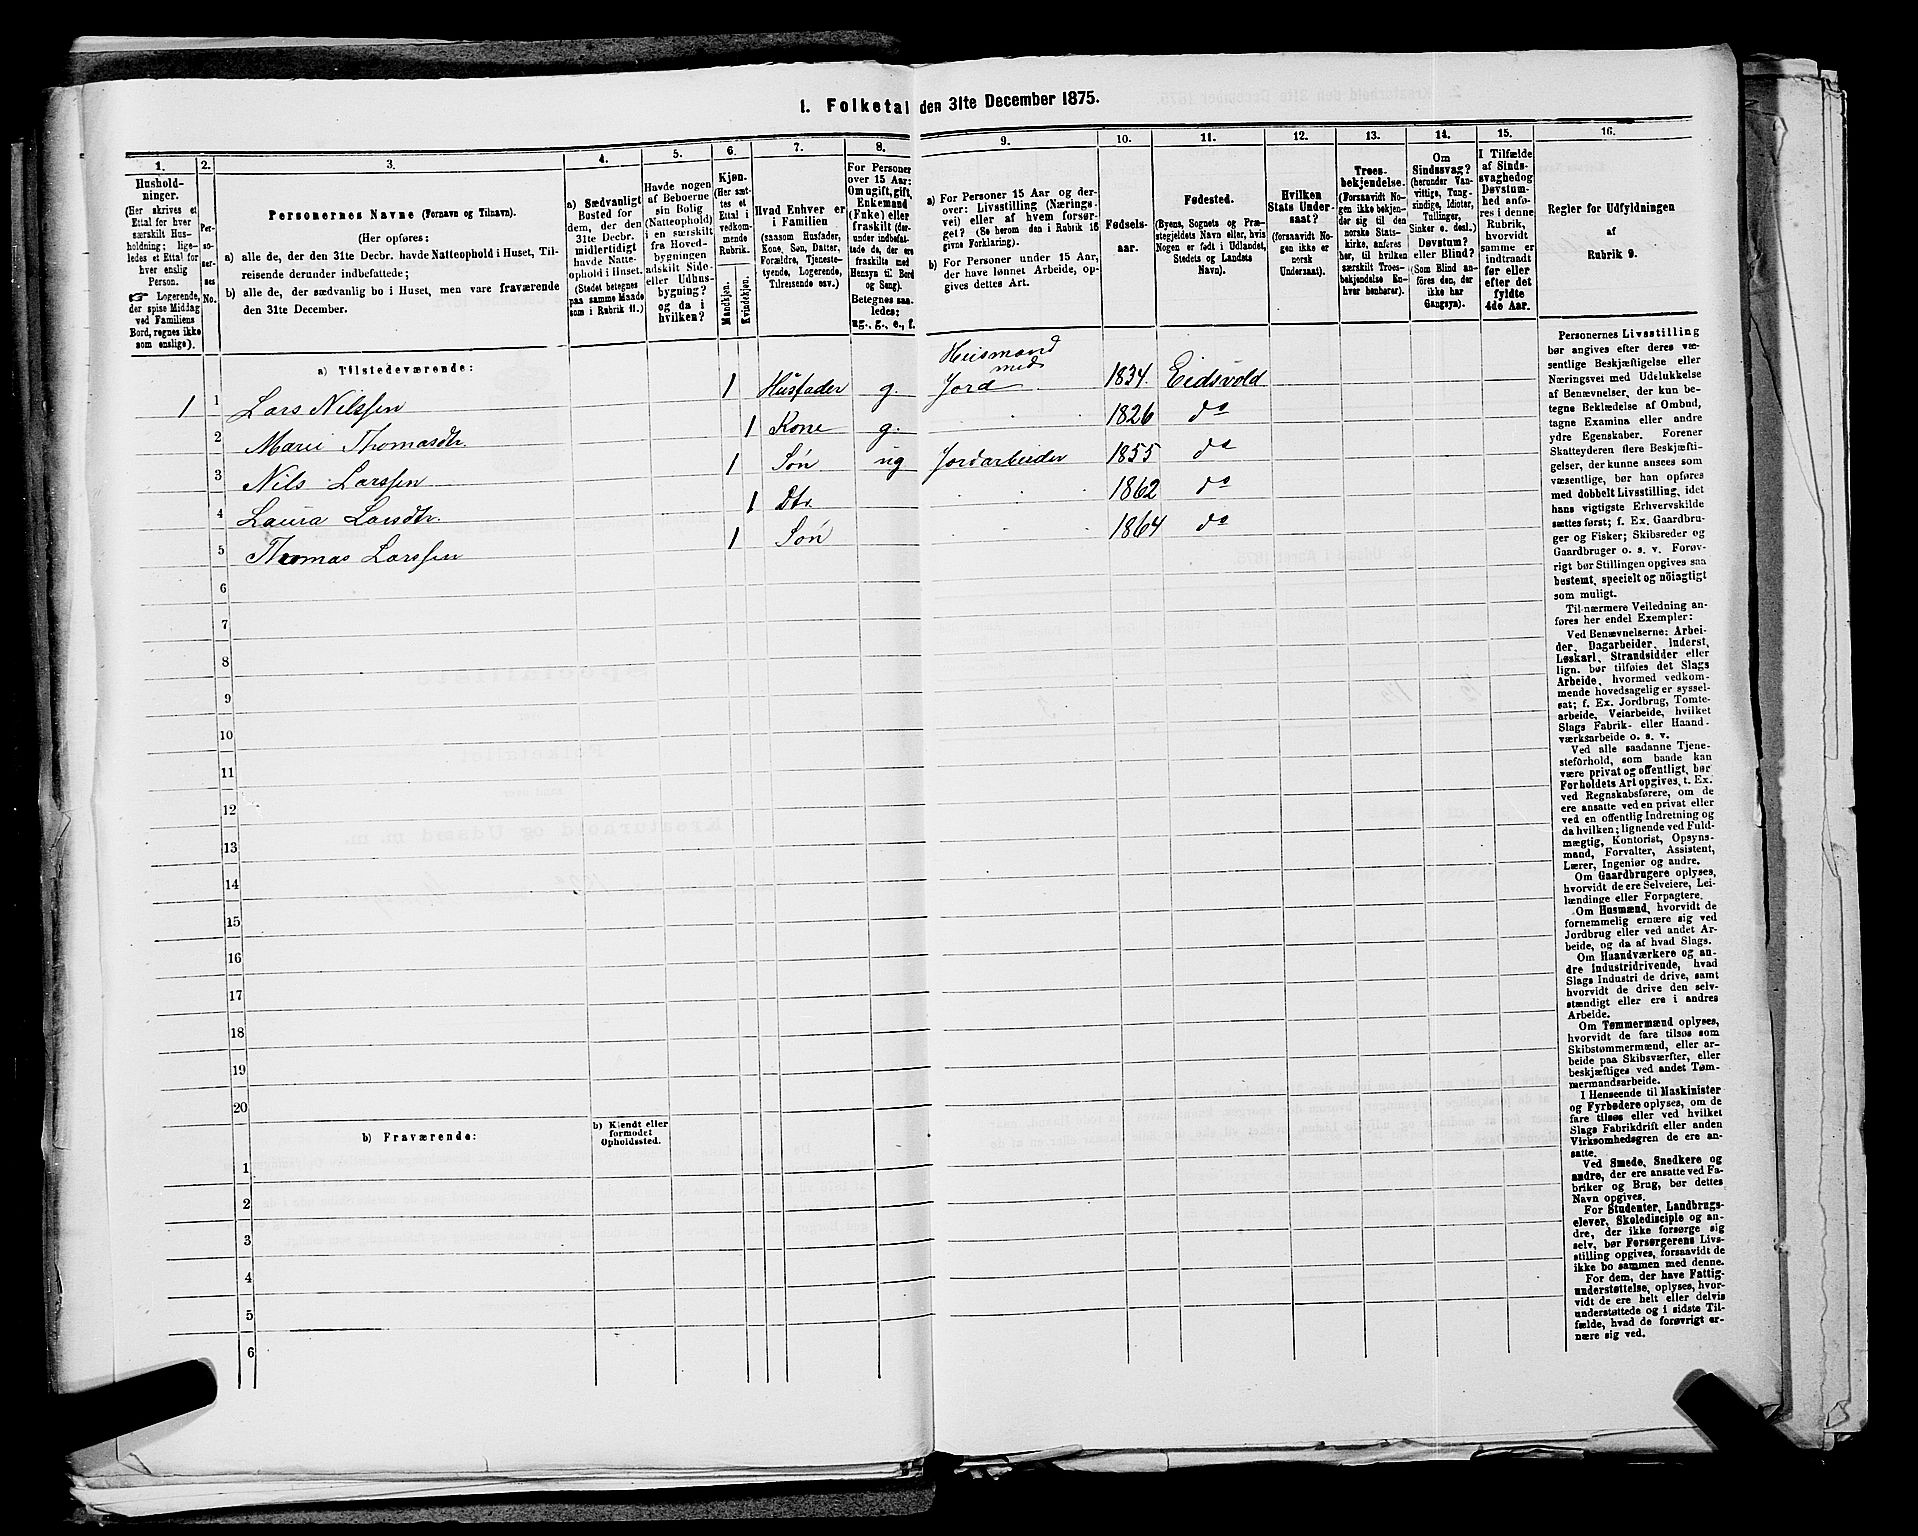 1. Folketal den 31te December 1875.
1. 2. 3. 4. 5. 6. 7. 8. 9. 10. 11. 12. 13. 14. 15. 16.
Hushold-
ninger.
(Her skrives et
Ettal for hver
særskilt Hus-
holdning; lige-
ledes et Ettal for
hver enslig
Person.
☞ Logerende,
der spise Middag
ved Familiens
Bord, regnes ikke
som enslige).
Per-
so-
ner-
nes
No.
Personernes Navne (Fornavn og Tilnavn).
(Her opføres:
a) alle de, der den 31te Decbr. havde Natteophold i Huset, Til-
reisende derunder indbefattede;
b) alle de, der sædvanlig bo i Huset, men vare fraværende
den 31te December.
a) Sædvanligt
Bosted for
dem, der den
31te Decbr.
midlertidigt
havde Natte-
ophold i Huset.
(Stedet betegnes
paa samme Maade
som i Rubrik 11.)
Havde nogen
af Beboerne
sin Bolig
(Natteophold)
i en særskilt
fra Hoved-
bygningen
adskilt Side-
eller Udhus-
bygning?
og da i
hvilken?
Kjøn.
(Her sæt-
tes et
Ettal i
vedkom-
mende
Rubrik.
Mandkjøn.
Kvindekjøn.
Hvad Enhver er
i Familien
(saasom Husfader,
Kone, Søn, Datter,
Forældre, Tjeneste-
tyende, Logerende,
Tilreisende osv.)
For Personer
over 15 Aar:
Om ugift, gift,
Enkemand
(Enke) eller
fraskilt (der-
under indbefat-
tede de, der ere
fraskilte med
Hensyn til Bord
og Seng).
Betegnes saa-
ledes:
ug., g., e., f.
a) For Personer 15 Aar og der-
over: Livsstilling (Nærings-
vei) eller af hvem forsør-
get? (Se herom den i Rubrik 16
givne Forklaring).
b) For Personer under 15 Aar,
der have lønnet Arbeide, op-
gives dettes Art.
Fødsels-
aar.
Fødested.
(Byens, Sognets og Præ-
stegjeldets Navn eller, hvis
Nogen er født i Udlandet,
Stedets og Landets
Navn).
Hvilken
Stats Under-
saat?
(forsaavidt No-
gen ikke er
norsk
Undersaat).
Troes-
bekjendelse.
(Forsaavidt No-
gen ikke bekjen-
der sig til den
norske Stats-
kirke, anføres
her, til hvilken
særskilt Troes-
bekjendelse En-
hver henhører).
Om
Sindssvag?
(herunder Van-
vittige, Tung-
sindige, Idioter,
Tullinger,
Sinker o. desl.)
Døvstum?
eller Blind?
(Som Blind an-
føres den, der
ikke har
Gangsyn).
I Tilfælde
af Sinds-
svaghed og
Døvstum-
hed anfø-
res i denne
Rubrik,
hvorvidt
samme er
indtraadt
før eller
efter det
fyldte
4de Aar.
Regler for Udfyldningen
af
Rubrik 9.
a) Tilstedeværende:
Huismand
med
1 1 Lars Nilssen 1 Husfader g. Jord 1834. Eidsvold
2 Marie Thomasdtr. 1 Kone g. 1826 do
3 Nils Larssen 1 Søn ug Jordarbeider 1855 do
4 Laura Larsdtr. 1 Dtr. 1862 do
5 Thomas Larssen 1 Søn 1864 do
6
7
8
9
10
11
12
13
14
15
16
17
18
19
20
b) Fraværende:
b) Kjendt eller
formodet
Opholdssted.
1
2
3
4
5
6
Personernes Livsstilling
bør angives efter deres væ-
sentlige Beskjæftigelse eller
Næringsvei med Udelukkelse
af Benævnelser, der kun be-
tegne Beklædelse af Ombud,
tagne Examina eller andre
ydre Egenskaber. Forener
Skatteyderen flere Beskjæfti-
gelser, der kunne ansees som
væsentlige, bør han opføres
med dobbelt Livsstilling, idet
hans vigtigste Erhvervskilde
sættes først; f. Ex. Gaardbru-
ger og Fisker; Skibsreder og
Gaardbruger o. s. v. Forøv-
rigt bør Stillingen opgives saa
bestemt, specielt og nöiagtigt
som muligt.
Til nærmere Veiledning an-
føres her endel Exempler:
Ved Benævnelserne: Arbei-
der, Dagarbeider, Inderst,
Løskarl, Strandsidder eller
lign. bør tilføies det Slags
Arbeide, hvormed vedkom-
mende hovedsagelig er syssel-
sat; f. Ex. Jordbrug, Tomte-
arbeide, Veiarbeide, hvilket
Slags Fabrik- eller Haand-
værksarbeide o. s. v.
Ved alle saadanne Tjene-
steforhold, som baade kan
være privat og offentligt, bør
Forholdets Art opgives, t. Ex.
ved Regnskabsførere, om de
ere ansatte ved en privat eller
ved en offentlig Indretning og
da hvilken; lignende ved Fuld-
mægtig, Kontorist, Opsyns-
mand, Forvalter, Assistent,
Lærer, Ingeniør og andre.
Om Gaardbrugere oplyses,
hvorvidt de ere Selveiere, Lei-
lændinge eller Forpagtere.
Om Husmænd, hvorvidt de
fornemmelig ernære sig ved
Jordbrug eller ved andet Ar-
beide, og da af hvad Slags.
Om Haandværkere og an-
dre Industridrivende, hvad
Slags Industri de drive, samt
hvorvidt de drive den selv-
stændigt eller ere i andres
Arbeide.
Om Tømmermænd oplyses,
hvorvidt de fare tilsøs som
Skibstømmermænd, eller ar-
beide paa Skibsværfter, eller
beskjæftiges ved andet Tøm-
mermandsarbeide.
I Henseende til Maskinister
og Fyrbødere oplyses, om de
fare tilsøs eller ved hvilket
Slags Fabrikdrift eller anden
Virksomhedsgren de ere an-
satte.
Ved Smede, Snedkere og
andre, der ere ansatte ved Fa-
briker og Brug, bør dettes
Navn opgives.
For Studenter, Landbrugs-
elever, Skoledisciple og an-
dre, der ikke forsørge sig
selv, bør Forsørgerens Livs-
stilling opgives, forsaavidt de
ikke bo sammen med denne.
For dem, der have Fattig-
understøttelse, oplyses, hvor-
vidt de ere helt eller delvis
understøttede og i sidste Til-
fælde, hvad de forøvrigt er-
nære sig ved.